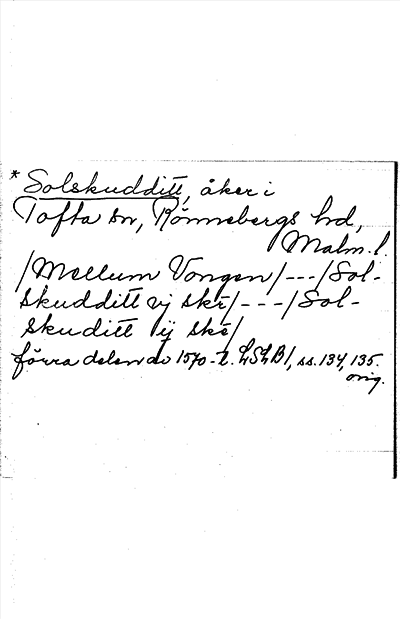 * Solskudditt, åker i
Tofta sn, Rönnebergs hd,
Malm. l.
/Mellum Vongen/---/Sol-
skudditt vj skr/---/Sol-
skuditt ij skr/
förra delen av 1570-t. LSLB1, ss. 134, 135.
orig.